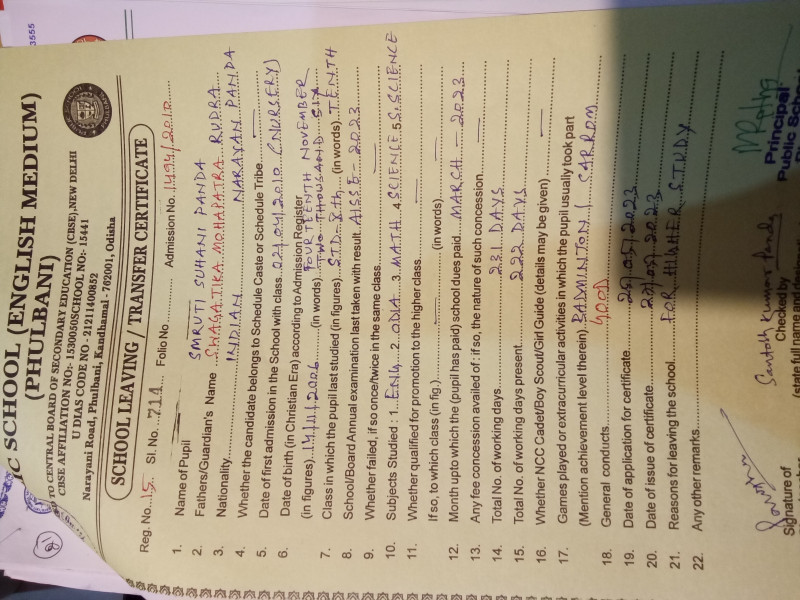 IC SCHOOL (ENGLISH MEDIUM)
(PHULBANI)
TO CENTRAL BOARD OF SECONDARY EDUCATION (CBSE), NEW DELHI
CBSE AFFILIATION NO:- 1530050 SCHOOL NO:- 15441
U DIAS CODE NO - 21211400852
Narayani Road, Phulbani, Kandhamal - 762001, Odisha
SCHOOL LEAVING / TRANSFER CERTIFICATE
Reg. No. 15 Sl. No. 714 Folio No. Admission No. 1494/2010
1. Name of Pupil SMRUTI SUHANI PANDA
2. Fathers/Guardian's Name SWASATIKA MOHAPATRA RUDRA NARAYAN PANDA
3. Nationality INDIAN
4. Whether the candidate belongs to Schedule Caste or Schedule Tribe —
5. Date of first admission in the School with class 02/04/2010 (NURSERY)
6. Date of birth (in Christian Era) according to Admission Register
(in figures) 14/11/2006 (in words) FORTEENTH NOVEMBER TWO THOUSAND SIX
7. Class in which the pupil last studied (in figures) STD- (in words) TENTH
8. School/Board Annual examination last taken with result AISSE-2023
9. Whether failed, if so once/twice in the same class —
10. Subjects Studied : 1. ENG 2. ODIA 3. MATH 4. SCIENCE 5. S.SCIENCE
11. Whether qualified for promotion to the higher class —
If so, to which class (in fig.) — (in words) —
12. Month upto which the (pupil has paid) school dues paid MARCH - 2023
13. Any fee concession availed of : if so, the nature of such concession —
14. Total No. of working days 231 DAYS
15. Total No. of working days present 222 DAYS
16. Whether NCC Cadet/Boy Scout/Girl Guide (details may be given) —
17. Games played or extracurricular activities in which the pupil usually took part
(Mention achievement level therein) BADMINTON / CARROM
18. General conducts GOOD
19. Date of application for certificate
20. Date of issue of certificate
21. Reasons for leaving the school FOR HIGHER STUDY
22. Any other remarks
Signature of
Santosh Kumar Panda
Checked by
(state full name and
Principal
Public School
3555